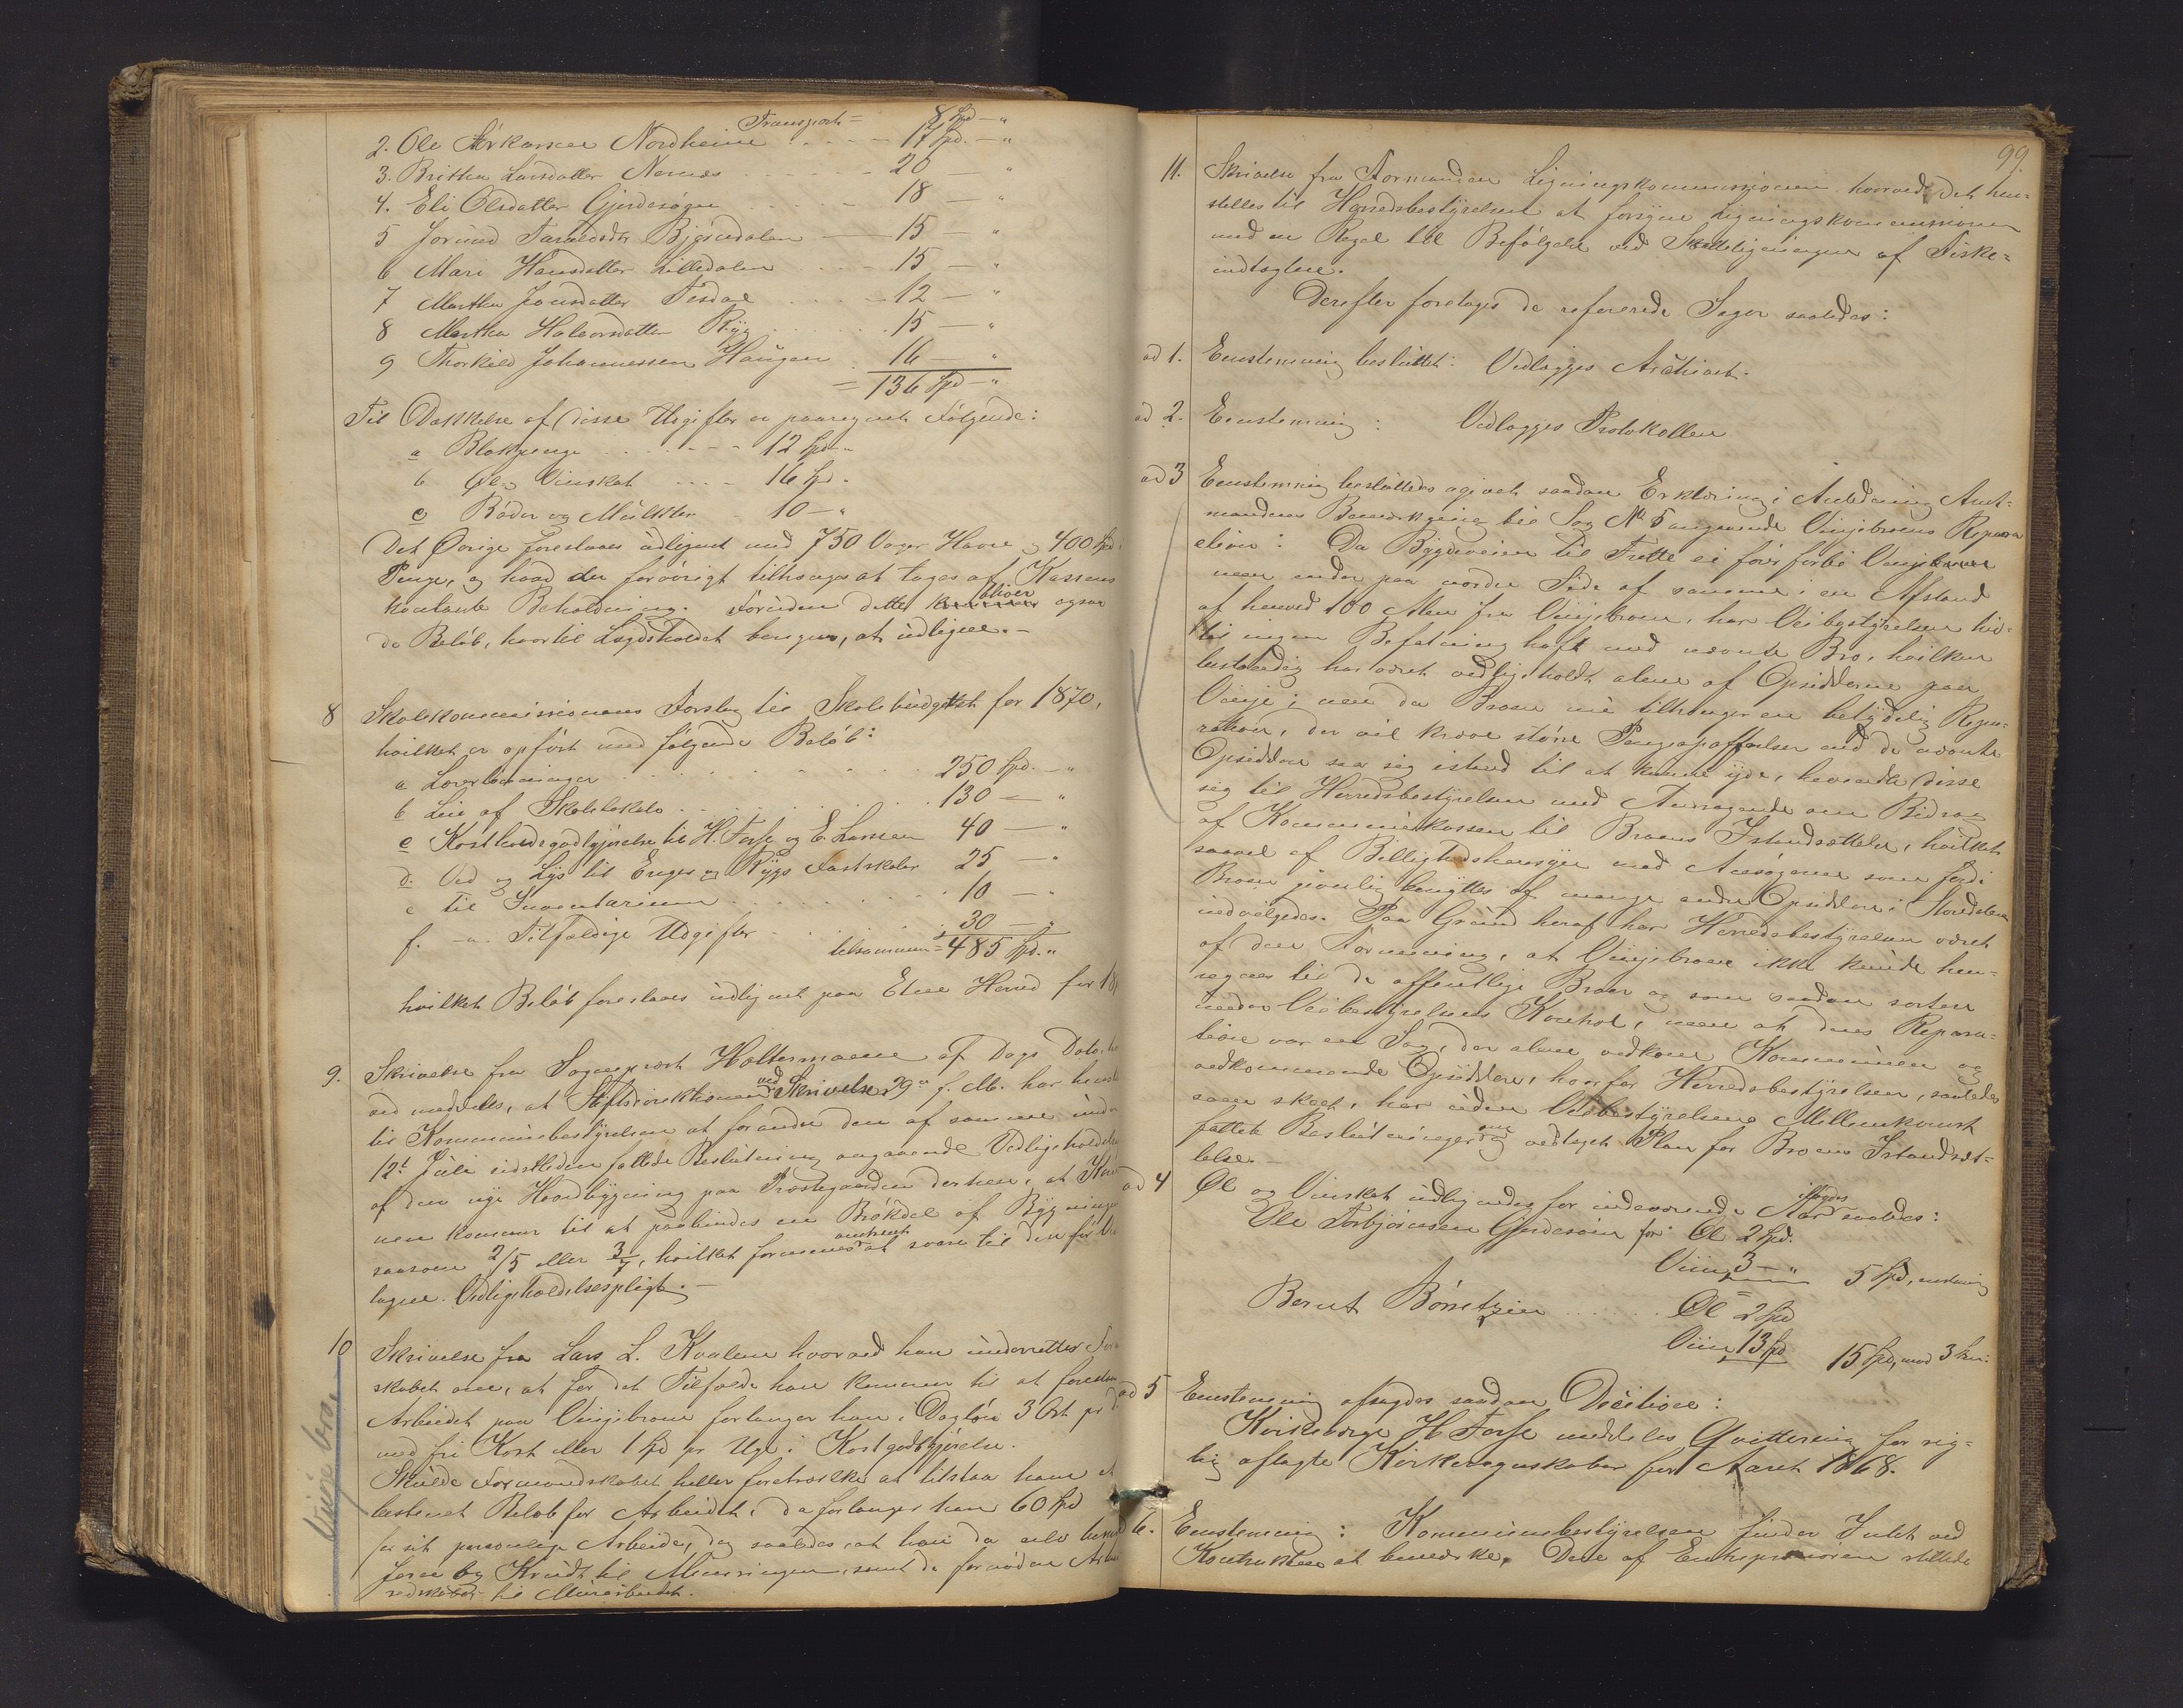 Transport = 8 Spd - "
2. Ole Størkarsen Nordheim - 17 Spd. - "
3. Britha Larsdatter Nernæs - 20 "
4. Eli Olsdatter Gjerdesøgne - 18 - "
5 Jorund Taraldsdtr Bjørndalen - 15 - "
6 Mari Hansdatter Lilledalen - 15 - "
7 Martha Jonsdatter Tesdal - 12 - "
8 Martha Halvorsdatter Ryg - 15 - "
9 Thorkild Johannessen Haugen 16 - "
= 136 Spd - "
Til Dækkelse af disse Udgifter er paaregnet Følgende:
a Blokpenge - 12 Spd - "
b Øl og Vinskat - 16 Spd.
c Bøder og Mulkter 10 - "
Det Øvrige foreslaaes udlignet med 750 Voger Havre og 400 Spd.
Penge, og hvad der forøvrigt tiltrænges at tages af Kassens
kontante Beholdning. Foruden dette bliver ogsaa
de Beløb, hvortil Lægdsholdet beregnes, at udligne. -
8 Skolekommissionens Forslag til Skolebudgettet for 1870,
hvilket er opført med følgende Beløb:
a Lærerlønninger 250 Spd. - "
b Leie af Skolelokale 130 - "
c Kostholdsgodtgjørelse til H. Fosse og E. Larsen 40 - "
d. Ved og Lys til Enges og Rygs Fastskoler 25 - "
e til Inventarium 10 - "
f. - " - Tilfældige Udgifter 30 - "
tilsammen = 485 Spd. "
hvilket Beløb foreslaaes udlignet paa Etne Herred for
9. Skrivelse fra Sogneprest Holtermann af Dags Dato,
ved meddeles, at Stiftsdirektionen ved Skrivelse 29de f. M. har
til Kommunebestyrelsen at forandre den af samme under
12te Juli sidstleden fattede Beslutning angaaende Vedligeholdelse
af den nye Hovedbygning paa Præstegaarden derhen, at
nen kommer til at paabindes en Brøkdel af Bygningen
saasom 2/5 eller 3/7, hvilket formenes omtrent at svare til den før
tagne Vedligeholdelsespligt. -
10 Skrivelse fra Lars L. Kvalen hvorved han underretter
skabet om, at for det Tilfælde han kommer til at forestaa
Arbeidet paa Vinjebroen forlanger han i Dagløn 3 Ort pr
med fri Kost eller 1 Spd pr Uge i Kostgodtgjørelse.
Skulde Formandskabet heller foretrække at tilstaa ham et
bestemt Beløb for Arbeidet, da forlanger han 60 Spd
for sit personlige Arbeide, dog saaledes at han da selv
Krudt til Mineringen, samt de fornødne
redskaber til Murarbeidet.
Vinje bro
99.
11. Skrivelse fra Formanden Ligningskommissionen hvorved det hen=
stilles til Herredsbestyrelsen at forsyne Ligningskommissionen
med en Regel til Befølgelse ved Skatteligningen af Fiske=
indtægten.
Derefter foretages de refererede Sager saaledes:
ad 1. Eenstemmig besluttet: Vedlægges Archivet.
ad 2. Eenstemmig: Vedlægges Protokollen
ad 3 Eenstemmig besluttedes agivet saadan Erklæring i Anledning Amt=
mandens Bemærkning til Sag No 5 angaaende Vinjebroens Repara
tion: Da Bygdeveien til Frette ei fører forbi Vinjebroen
men under paa nordre Side af samme i en Afstand
af henved 100 Alen fra Vinjebroen, har Veibestyrelsen hid=
til ingen Befatning haft med nævnte Bro, hvilken
bestandig har været vedligeholdt alene af Opsidderne paa
Vinje; men da Broen nu tiltrænger en betydelig Repa=
ration, der vil kræve større Pengeopoffrelser end de nævnte
Opsiddere saa sig istand til at kunne yde, henvendte disse
sig til Herredsbestyrelsen med Andragende om Bidrag
af Kommunekassen til Broens Istandsættelse, hvilket
saavel af Billighedshensyn mod Ansøgerne som fordi
Broen jevnlig benyttes af mange andre Opsiddere i Stordalen
indvilgedes. Paa Grund heraf har Herredsbestyrelsen været
af den Formening, at Vinjebroen ikke kunde hen=
regnes til de offentlige Broer og som saadan sortere
under Veibestyrelsens Kontrol, men at dens Repara=
tion var en Sag, der alene vedkom Kommunen og
vedkommende Opsiddere, hvorfor Herredsbestyrelsen, saaledes
som skeet, har uden Veibestyrelsens Mellemkomst
fattet Beslutninger om og vedtaget Plan for Broens Istandsæt=
telse. -
ad 4 Øl og Vinskat udlignedes for indeværende Aar saaledes:
Ole Torbjørnsen Gjerdesøin for Øl 2 Spd.
Viin 3 - " 5 Spd, eenstemmig
Bernt Børretzen Øl 2 Spd
Viin 13 Spd 15 Spd, mod 3
ad 5 Eenstemmig afsagdes saadan Decition:
Kirkeværge H Fosse meddeles Qvittering for rig=
tig aflagte Kirkeregnskaber for Aaret 1868.
ad 6. Eenstemmig: Kommunebestyrelsen finder Intet ved
Kontrakten at bemærke. Den af Entreprenøren stillede